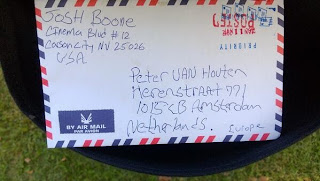 JOSH BOONE
CINEMA BLVD #12
CARSON CITY NV 25026
USA
POSTED
PRIORITY
PETER VAN HOUTEN
HERENSTRAAT 77/
1015 CB AMSTERDAM
NETHERLANDS.
EUROPE
BY AIR MAIL
PAR AVION